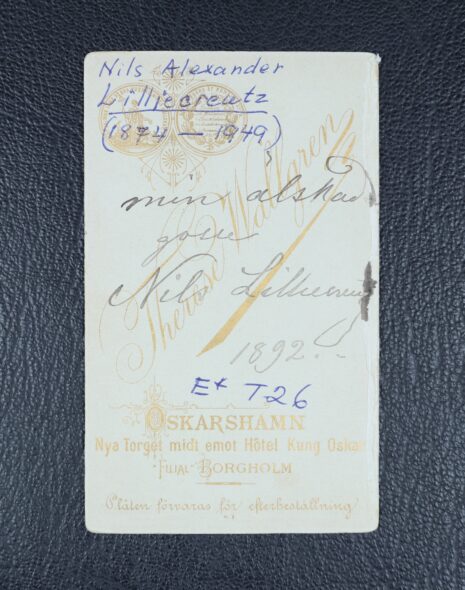 Nils Alexander
Lilljecreutz
(1874 — 1949)
Therese Wallgren
min älskad
Nils Lilliecreutz
1892.
Ex T26
OSKARSHAMN
Nya Torget midt emot Hôtel Kung Oskar
FILIAL BORGHOLM
Plåten förvaras för efterbeställning